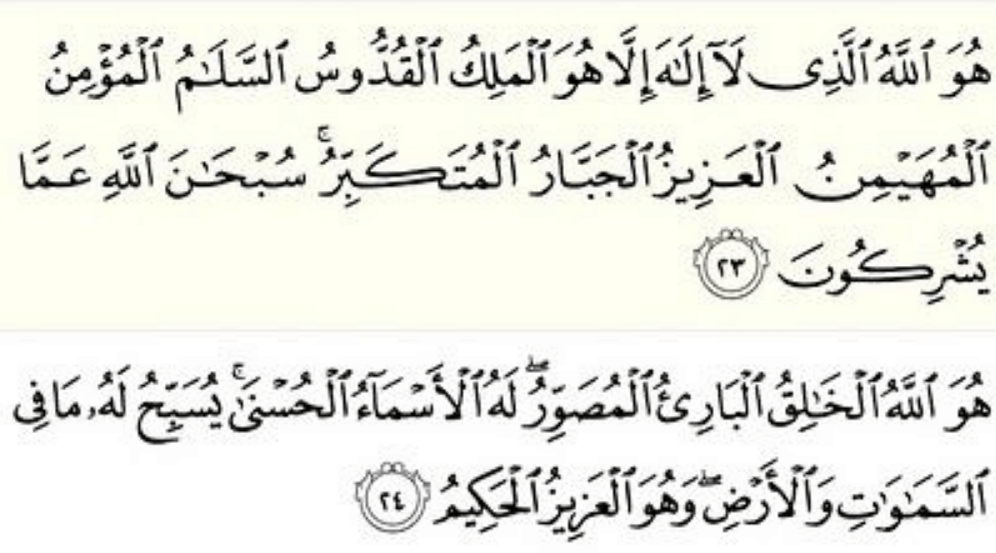 هُوَ ٱللَّهُ ٱلَّذِى لَآ إِلَٰهَ إِلَّا هُوَ ٱلْمَلِكُ ٱلْقُدُّوسُ ٱلسَّلَٰمُ ٱلْمُؤْمِنُ
ٱلْمُهَيْمِنُ ٱلْعَزِيزُ ٱلْجَبَّارُ ٱلْمُتَكَبِّرُ ۚ سُبْحَٰنَ ٱللَّهِ عَمَّا
يُشْرِكُونَ ٢٣
هُوَ ٱللَّهُ ٱلْخَٰلِقُ ٱلْبَارِئُ ٱلْمُصَوِّرُ ۖ لَهُ ٱلْأَسْمَآءُ ٱلْحُسْنَىٰ ۚ يُسَبِّحُ لَهُۥ مَا فِى
ٱلسَّمَٰوَٰتِ وَٱلْأَرْضِ ۖ وَهُوَ ٱلْعَزِيزُ ٱلْحَكِيمُ ٢٤